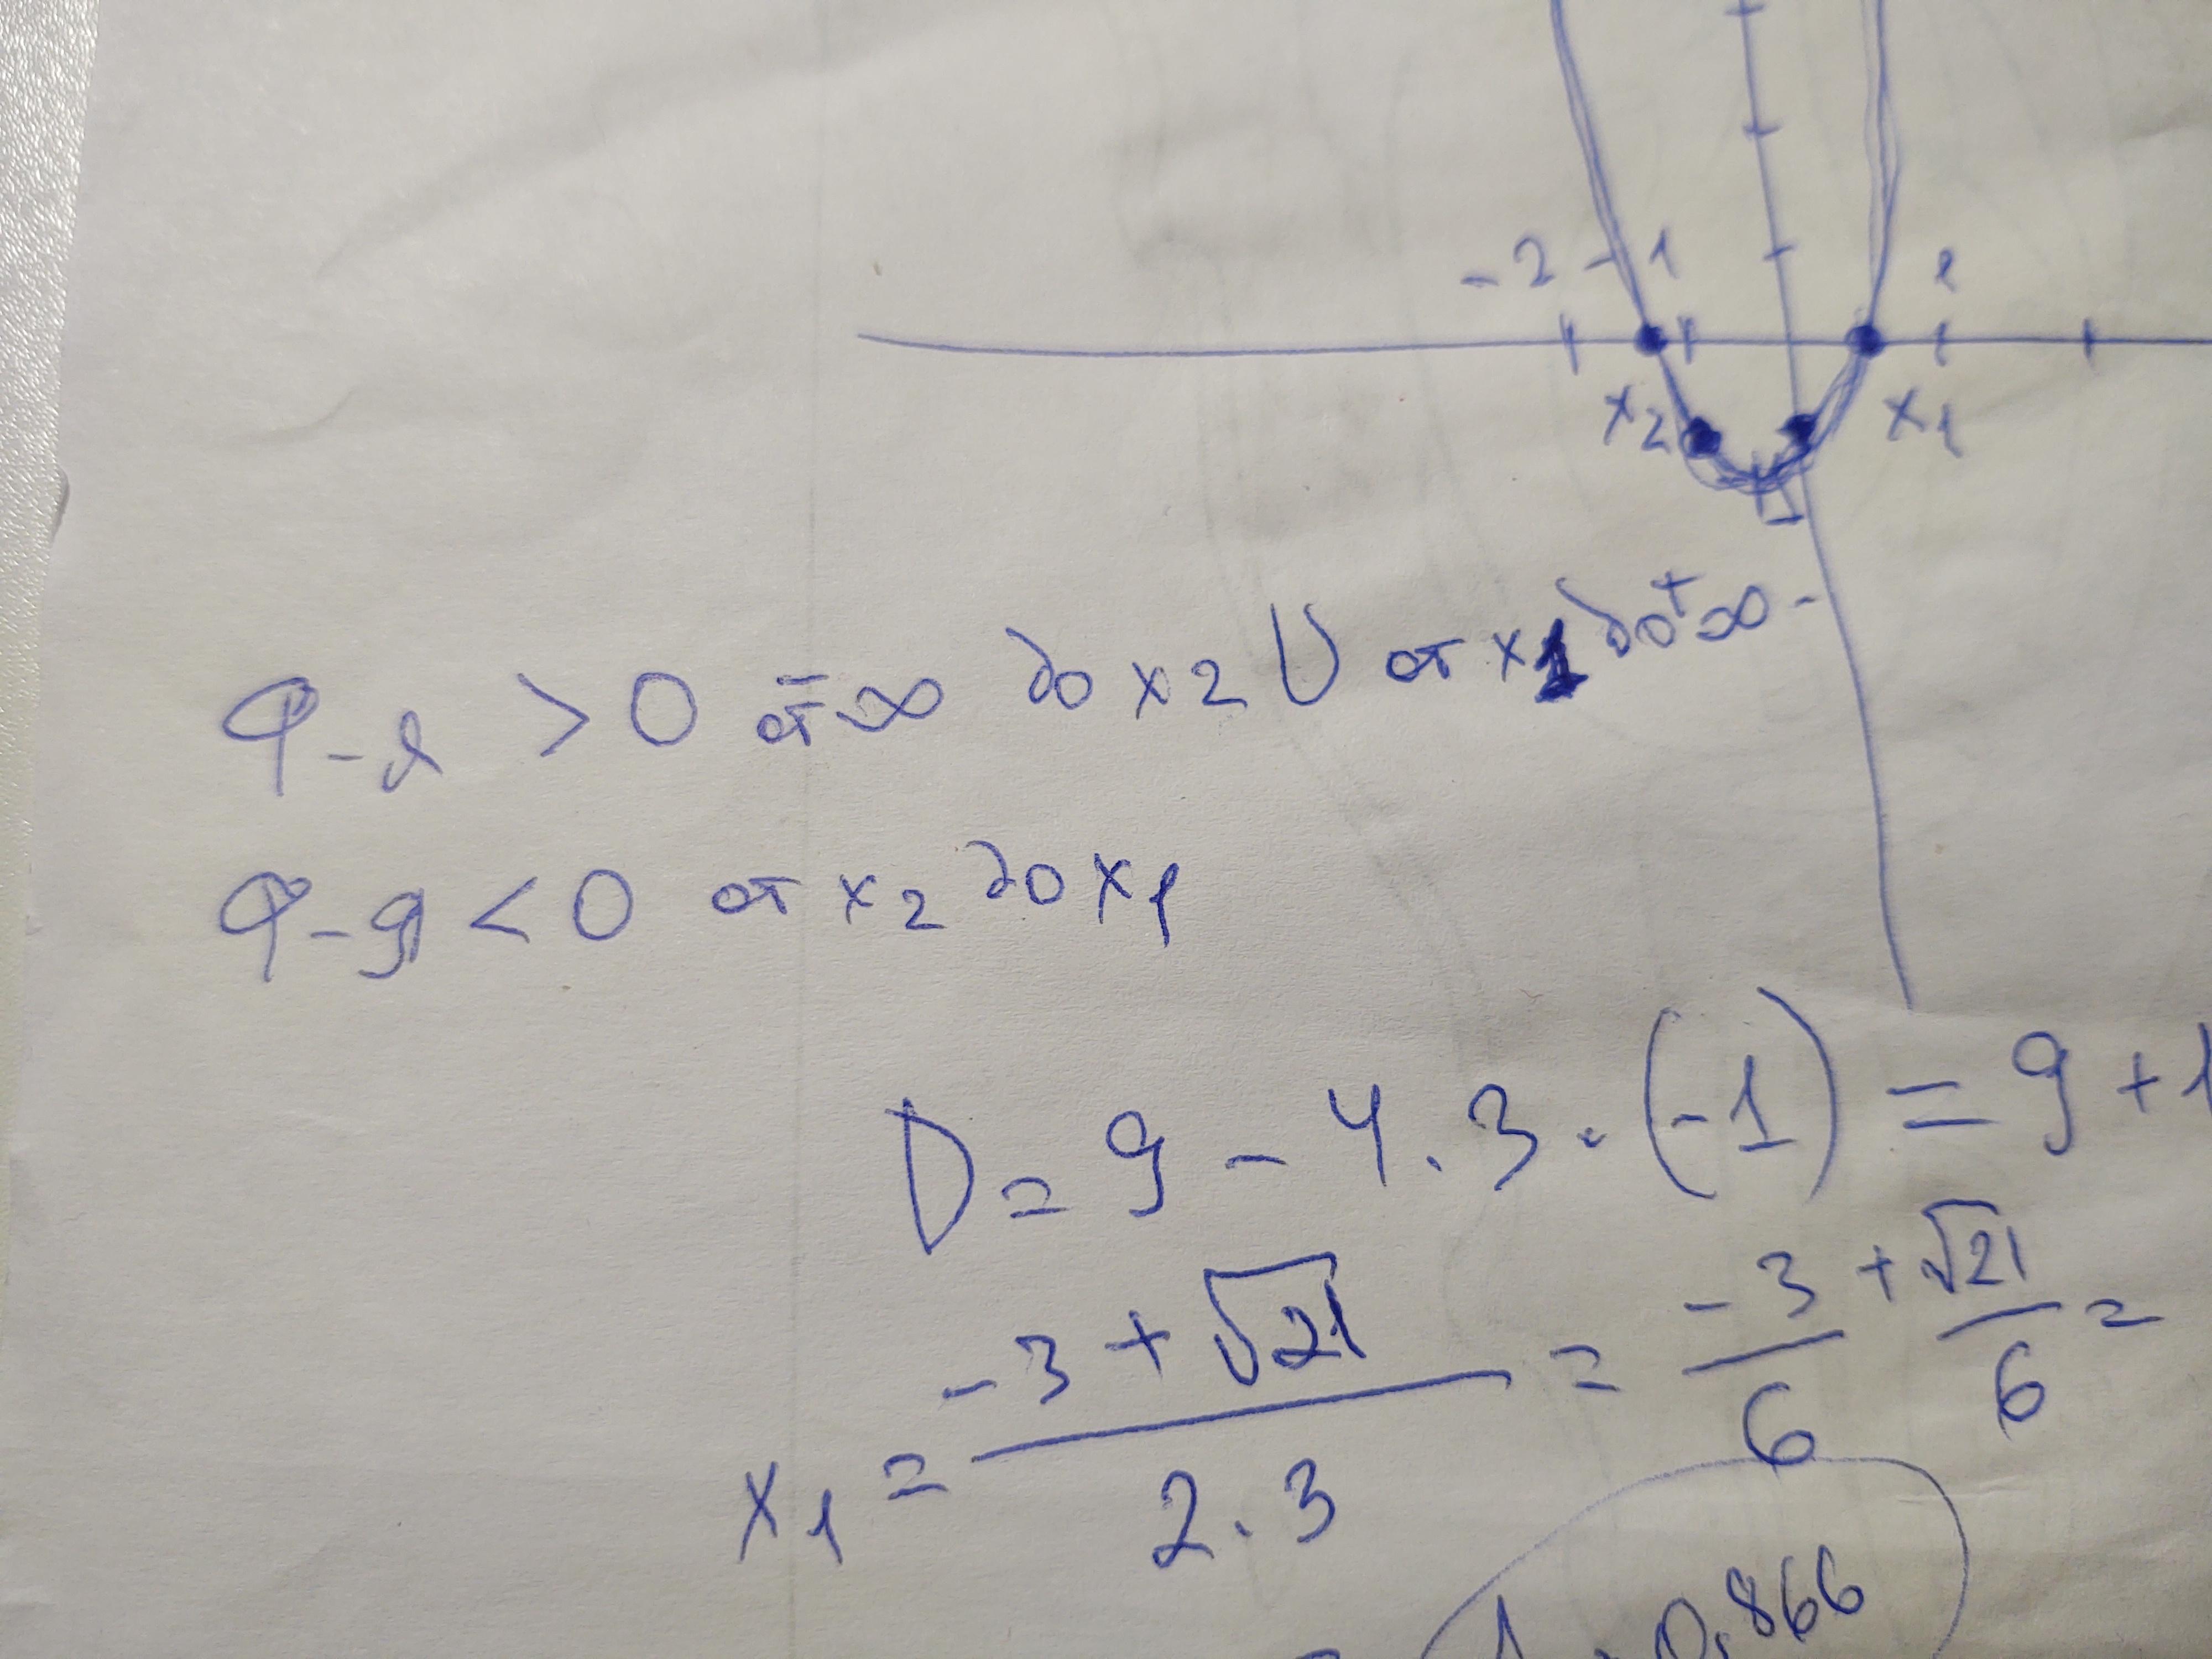 -2 -1 1
x2 x1
-1
Ф-я > 0 от -∞ до x2 U от x1 до +∞
Ф-я < 0 от x2 до x1
D = 9 - 4 · 3 · (-1) = 9 + 1
x1 = (-3 + √21) / (2 · 3) = -3/6 + √21/6 =
0,866